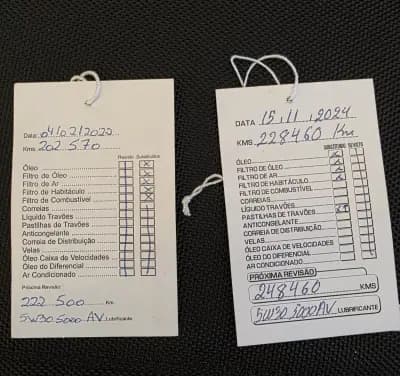 Data 04/02/2022
Kms. 202.570
Revisão Substituído
Óleo
Filtro de Óleo
Filtro de Ar
Filtro de Habitáculo
Filtro de Combustível
Correias
Líquido Travões
Pastilhas de Travões
Anticongelante
Correia de Distribuição
Velas
Óleo Caixa de Velocidades
Óleo do Diferencial
Ar Condicionado
Próxima Revisão
222.500 Km.
5W30.5000 AV Lubrificante
DATA 15.11.2024
KMS 228460 Km
SUBSTITUÍDO REVISTO
ÓLEO
FILTRO DE ÓLEO
FILTRO DE AR
FILTRO DE HABITÁCULO
FILTRO DE COMBUSTÍVEL
CORREIAS
LÍQUIDO TRAVÕES
PASTILHAS DE TRAVÕES
ANTICONGELANTE
CORREIA DE DISTRIBUIÇÃO
VELAS
ÓLEO CAIXA DE VELOCIDADES
ÓLEO DO DIFERENCIAL
AR CONDICIONADO
PRÓXIMA REVISÃO
248460 KMS
5W30.5000AV LUBRIFICANTE